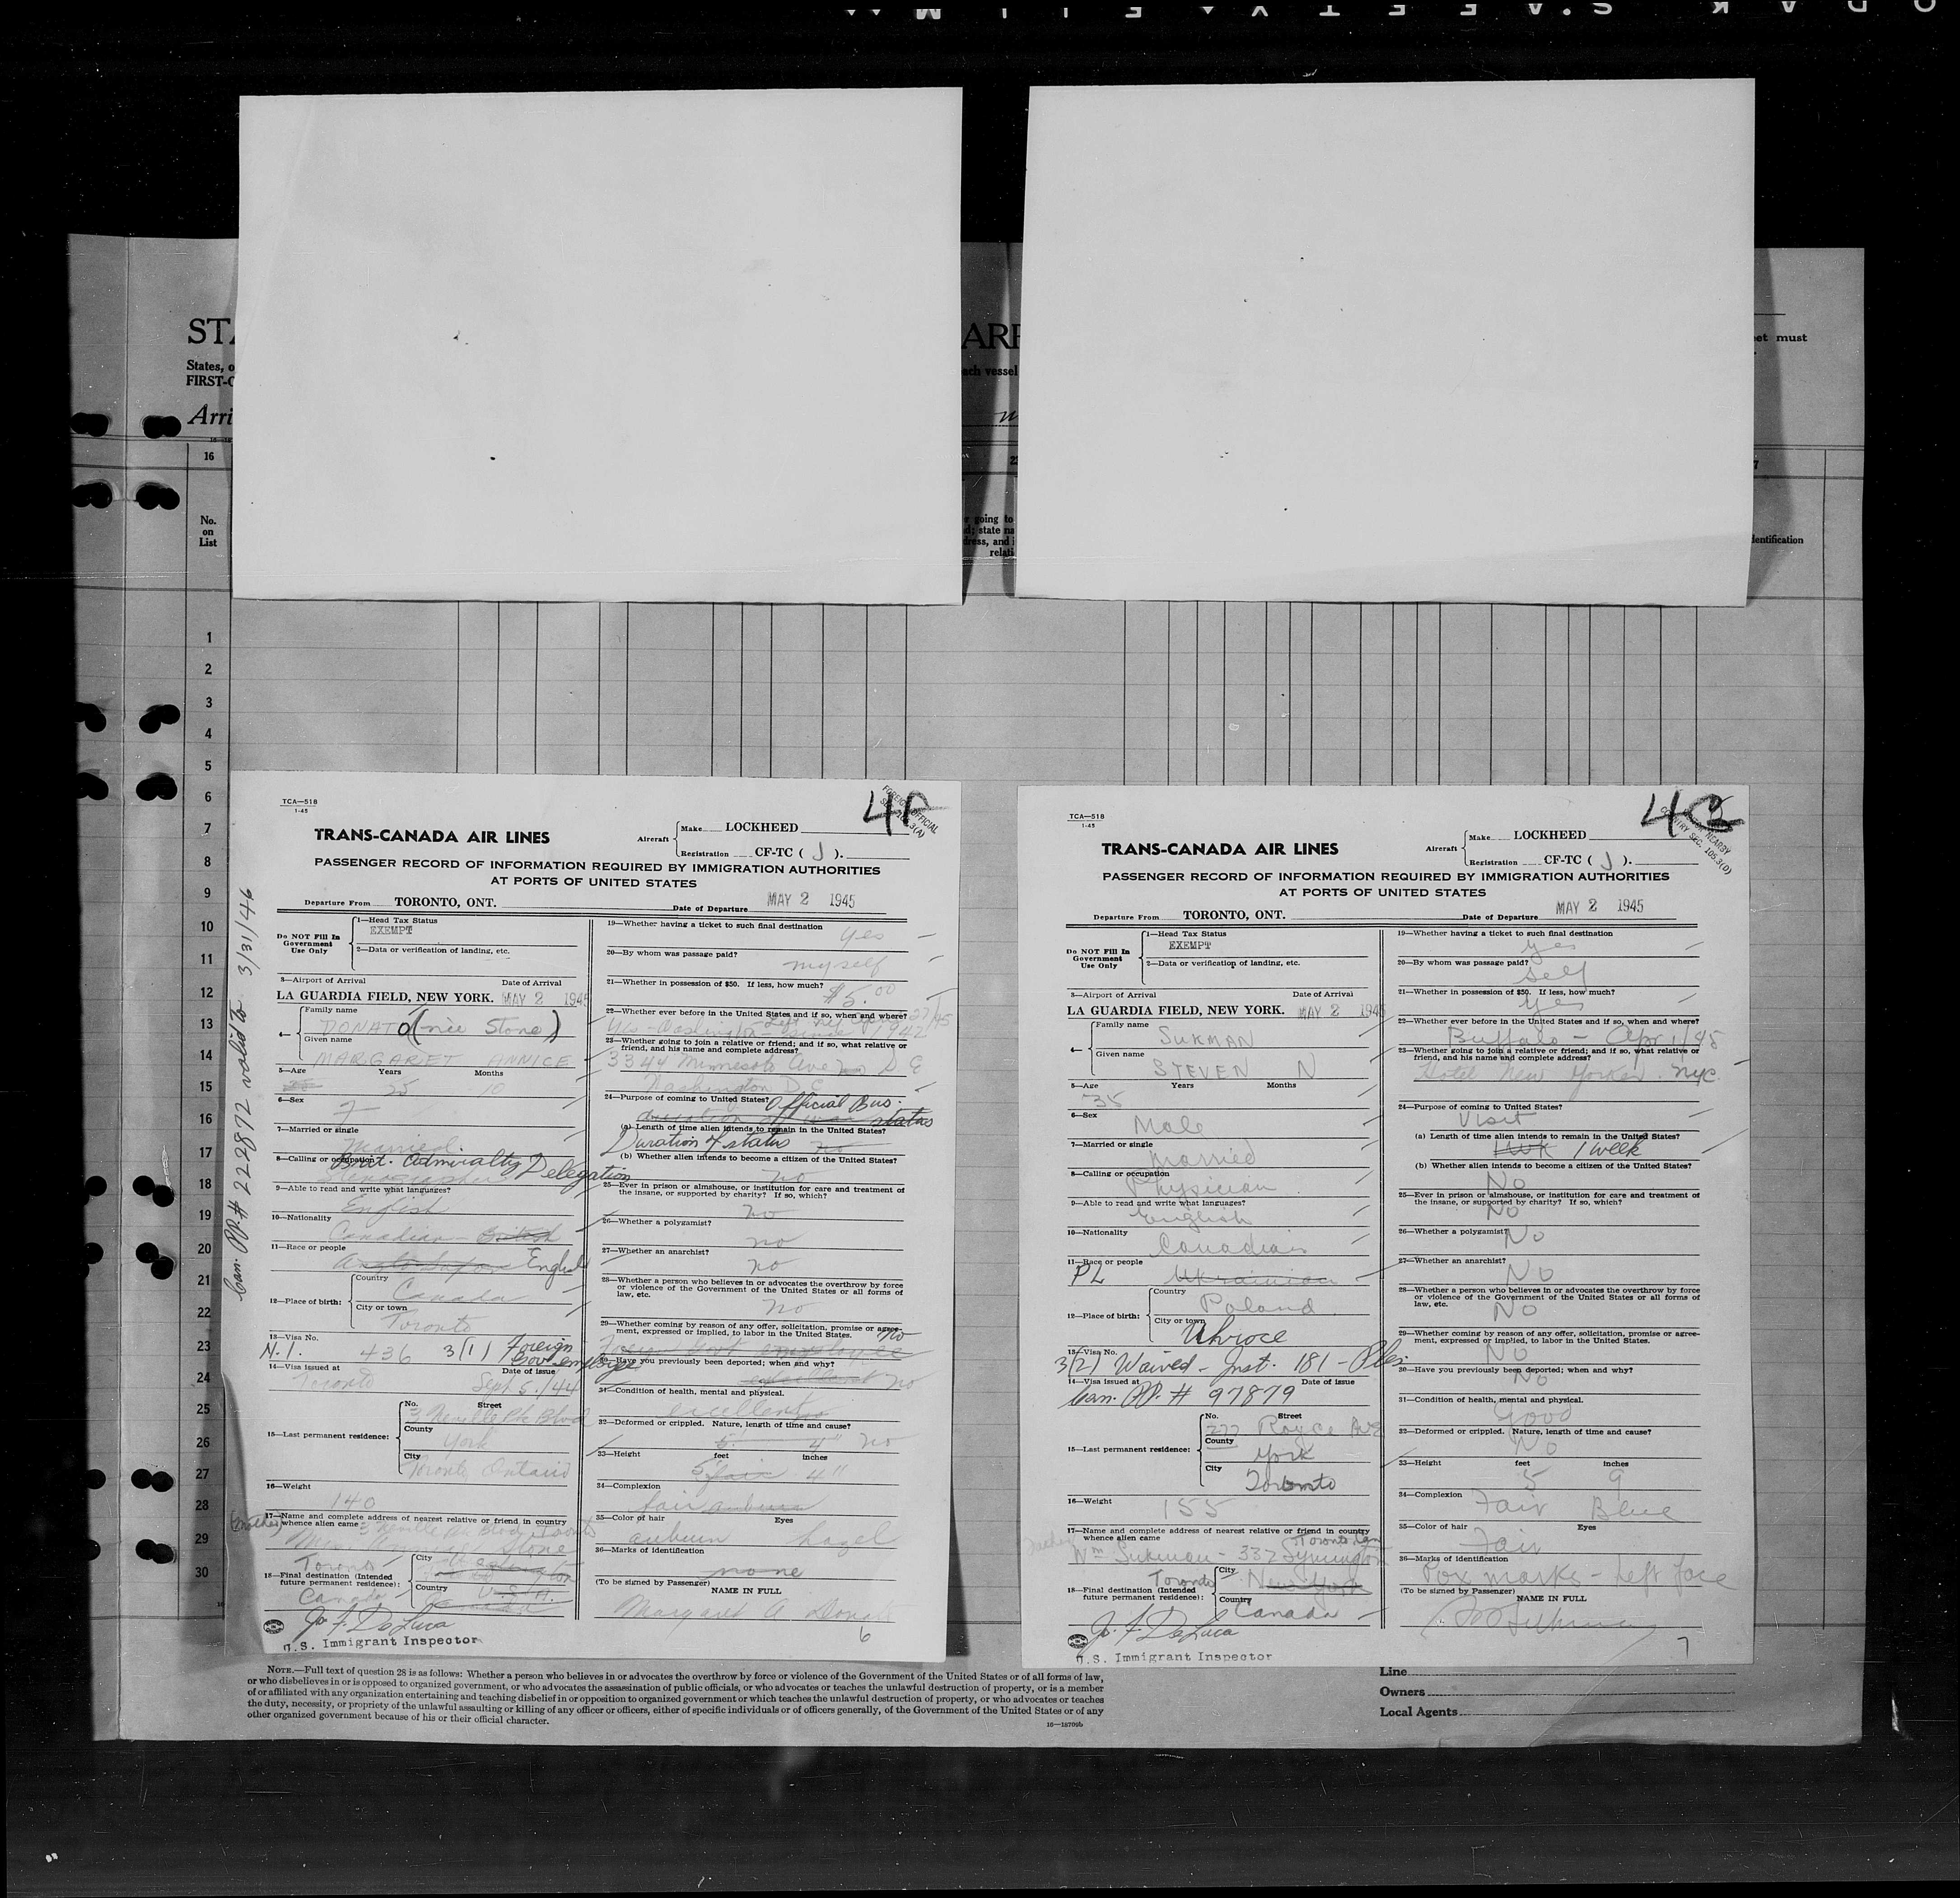 STA
ARR
eet must
States, o
ach vessel
FIRST-C
Arri
16
No.
on
List
going to
dress, and
relati
dentification
1
2
3
4
5
6
7
8
9
10
11
12
13
14
15
16
17
18
19
20
21
22
23
24
25
26
27
28
29
30
Can. PP. # 222872 valid to 3/31/46
TCA—518
1-45
4F
FOREIGN OFFICIAL
TRANS-CANADA AIR LINES
Aircraft
Make LOCKHEED
Registration CF-TC ( J ).
PASSENGER RECORD OF INFORMATION REQUIRED BY IMMIGRATION AUTHORITIES
AT PORTS OF UNITED STATES
Departure From TORONTO, ONT.
Date of Departure MAY 2 1945
Do NOT Fill In
Government
Use Only
1—Head Tax Status
EXEMPT
2—Data or verification of landing, etc.
3—Airport of Arrival Date of Arrival
LA GUARDIA FIELD, NEW YORK. MAY 2 1945
4—
Family name
DONATO (née Stone)
Given name
MARGARET ANNICE
5—Age Years Months
25 10
6—Sex
F
7—Married or single
Married
8—Calling or occupation
Brit. Admiralty Delegation
Stenographer
9—Able to read and write what languages?
English
10—Nationality
Canadian - British
11—Race or people
Anglo Saxon English
12—Place of birth:
Country
Canada
City or town
Toronto
13—Visa No.
N.I. 436 3(1) Foreign Gov. employee
14—Visa issued at Date of issue
Toronto Sept 5/44
15—Last permanent residence:
No. Street
3 Neville Pk Blvd
County
York
City
Toronto Ontario
16—Weight
140
17—Name and complete address of nearest relative or friend in country
whence alien came 3 Neville Pk Blvd Toronto
(Mother) Stone
18—Final destination (Intended
future permanent residence):
Toronto
Canada
City
Washington
Country
U.S.A.
J. F. DeLuca
U.S. Immigrant Inspector
19—Whether having a ticket to such final destination
yes
20—By whom was passage paid?
myself
21—Whether in possession of $50. If less, how much?
$5.00
22—Whether ever before in the United States and if so, when and where?
yes - Washington
23—Whether going to join a relative or friend; and if so, what relative or
friend, and his name and complete address?
3344 Minnesota Ave S E
Washington D C
24—Purpose of coming to United States? Official Bus.
status
(a) Length of time alien intends to remain in the United States?
Duration of status
(b) Whether alien intends to become a citizen of the United States?
no
25—Ever in prison or almshouse, or institution for care and treatment of
the insane, or supported by charity? If so, which?
no
26—Whether a polygamist?
no
27—Whether an anarchist?
no
28—Whether a person who believes in or advocates the overthrow by force
or violence of the Government of the United States or all forms of
law, etc.
no
29—Whether coming by reason of any offer, solicitation, promise or agree-
ment, expressed or implied, to labor in the United States. no
Foreign Govt employee
30—Have you previously been deported; when and why?
excellent no
31—Condition of health, mental and physical.
excellent
32—Deformed or crippled. Nature, length of time and cause?
5 4" no
33—Height feet inches
5 fair 4"
34—Complexion
fair auburn
35—Color of hair Eyes
auburn hazel
36—Marks of identification
none
(To be signed by Passenger)
NAME IN FULL
Margaret A Donato
6
TCA—518
1-45
4
NEARBY
COUNTRY SEC. 105.3(D)
TRANS-CANADA AIR LINES
Aircraft
Make LOCKHEED
Registration CF-TC ( J ).
PASSENGER RECORD OF INFORMATION REQUIRED BY IMMIGRATION AUTHORITIES
AT PORTS OF UNITED STATES
Departure From TORONTO, ONT.
Date of Departure MAY 2 1945
Do NOT Fill In
Government
Use Only
1—Head Tax Status
EXEMPT
2—Data or verification of landing, etc.
3—Airport of Arrival Date of Arrival
LA GUARDIA FIELD, NEW YORK. MAY 2 1945
4—
Family name
SUKMAN
Given name
STEVEN N
5—Age Years Months
35
6—Sex
Male
7—Married or single
Married
8—Calling or occupation
Physician
9—Able to read and write what languages?
English
10—Nationality
Canadian
11—Race or people
PL Ukrainian
12—Place of birth:
Country
Poland
City or town
Uhroce
13—Visa No.
3(2) Waived - Inst. 181 -
14—Visa issued at Date of issue
Can. PP. # 97879
15—Last permanent residence:
No. Street
277 Royce Ave
County
York
City
Toronto
16—Weight
155
17—Name and complete address of nearest relative or friend in country
whence alien came Toronto Can
Wm Sukman - 337 Symington
18—Final destination (Intended
future permanent residence):
City
Toronto New York
Country
Canada
J. F. DeLuca
U.S. Immigrant Inspector
19—Whether having a ticket to such final destination
yes
20—By whom was passage paid?
self
21—Whether in possession of $50. If less, how much?
yes
22—Whether ever before in the United States and if so, when and where?
Buffalo - Apr 1/45
23—Whether going to join a relative or friend; and if so, what relative or
friend, and his name and complete address?
Hotel New Yorker. NYC.
24—Purpose of coming to United States?
Visit
(a) Length of time alien intends to remain in the United States?
1 WK 1 week
(b) Whether alien intends to become a citizen of the United States?
No
25—Ever in prison or almshouse, or institution for care and treatment of
the insane, or supported by charity? If so, which?
No
26—Whether a polygamist?
No
27—Whether an anarchist?
No
28—Whether a person who believes in or advocates the overthrow by force
or violence of the Government of the United States or all forms of
law, etc.
No
29—Whether coming by reason of any offer, solicitation, promise or agree-
ment, expressed or implied, to labor in the United States.
No
30—Have you previously been deported; when and why?
No
31—Condition of health, mental and physical.
Good
32—Deformed or crippled. Nature, length of time and cause?
No
33—Height feet inches
5 9
34—Complexion
Fair Blue
35—Color of hair Eyes
Fair
36—Marks of identification
Pox marks - Left face
(To be signed by Passenger)
NAME IN FULL
7
NOTE.—Full text of question 28 is as follows: Whether a person who believes in or advocates the overthrow by force or violence of the Government of the United States or of all forms of law,
or who disbelieves in or is opposed to organized government, or who advocates the assassination of public officials, or who advocates or teaches the unlawful destruction of property, or is a member
of or affiliated with any organization entertaining and teaching disbelief in or opposition to organized government or which teaches the unlawful destruction of property, or who advocates or teaches
the duty, necessity, or propriety of the unlawful assaulting or killing of any officer or officers, either of specific individuals or of officers generally, of the Government of the United States or of any
other organized government because of his or their official character.
16—18709b
Line
Owners
Local Agents